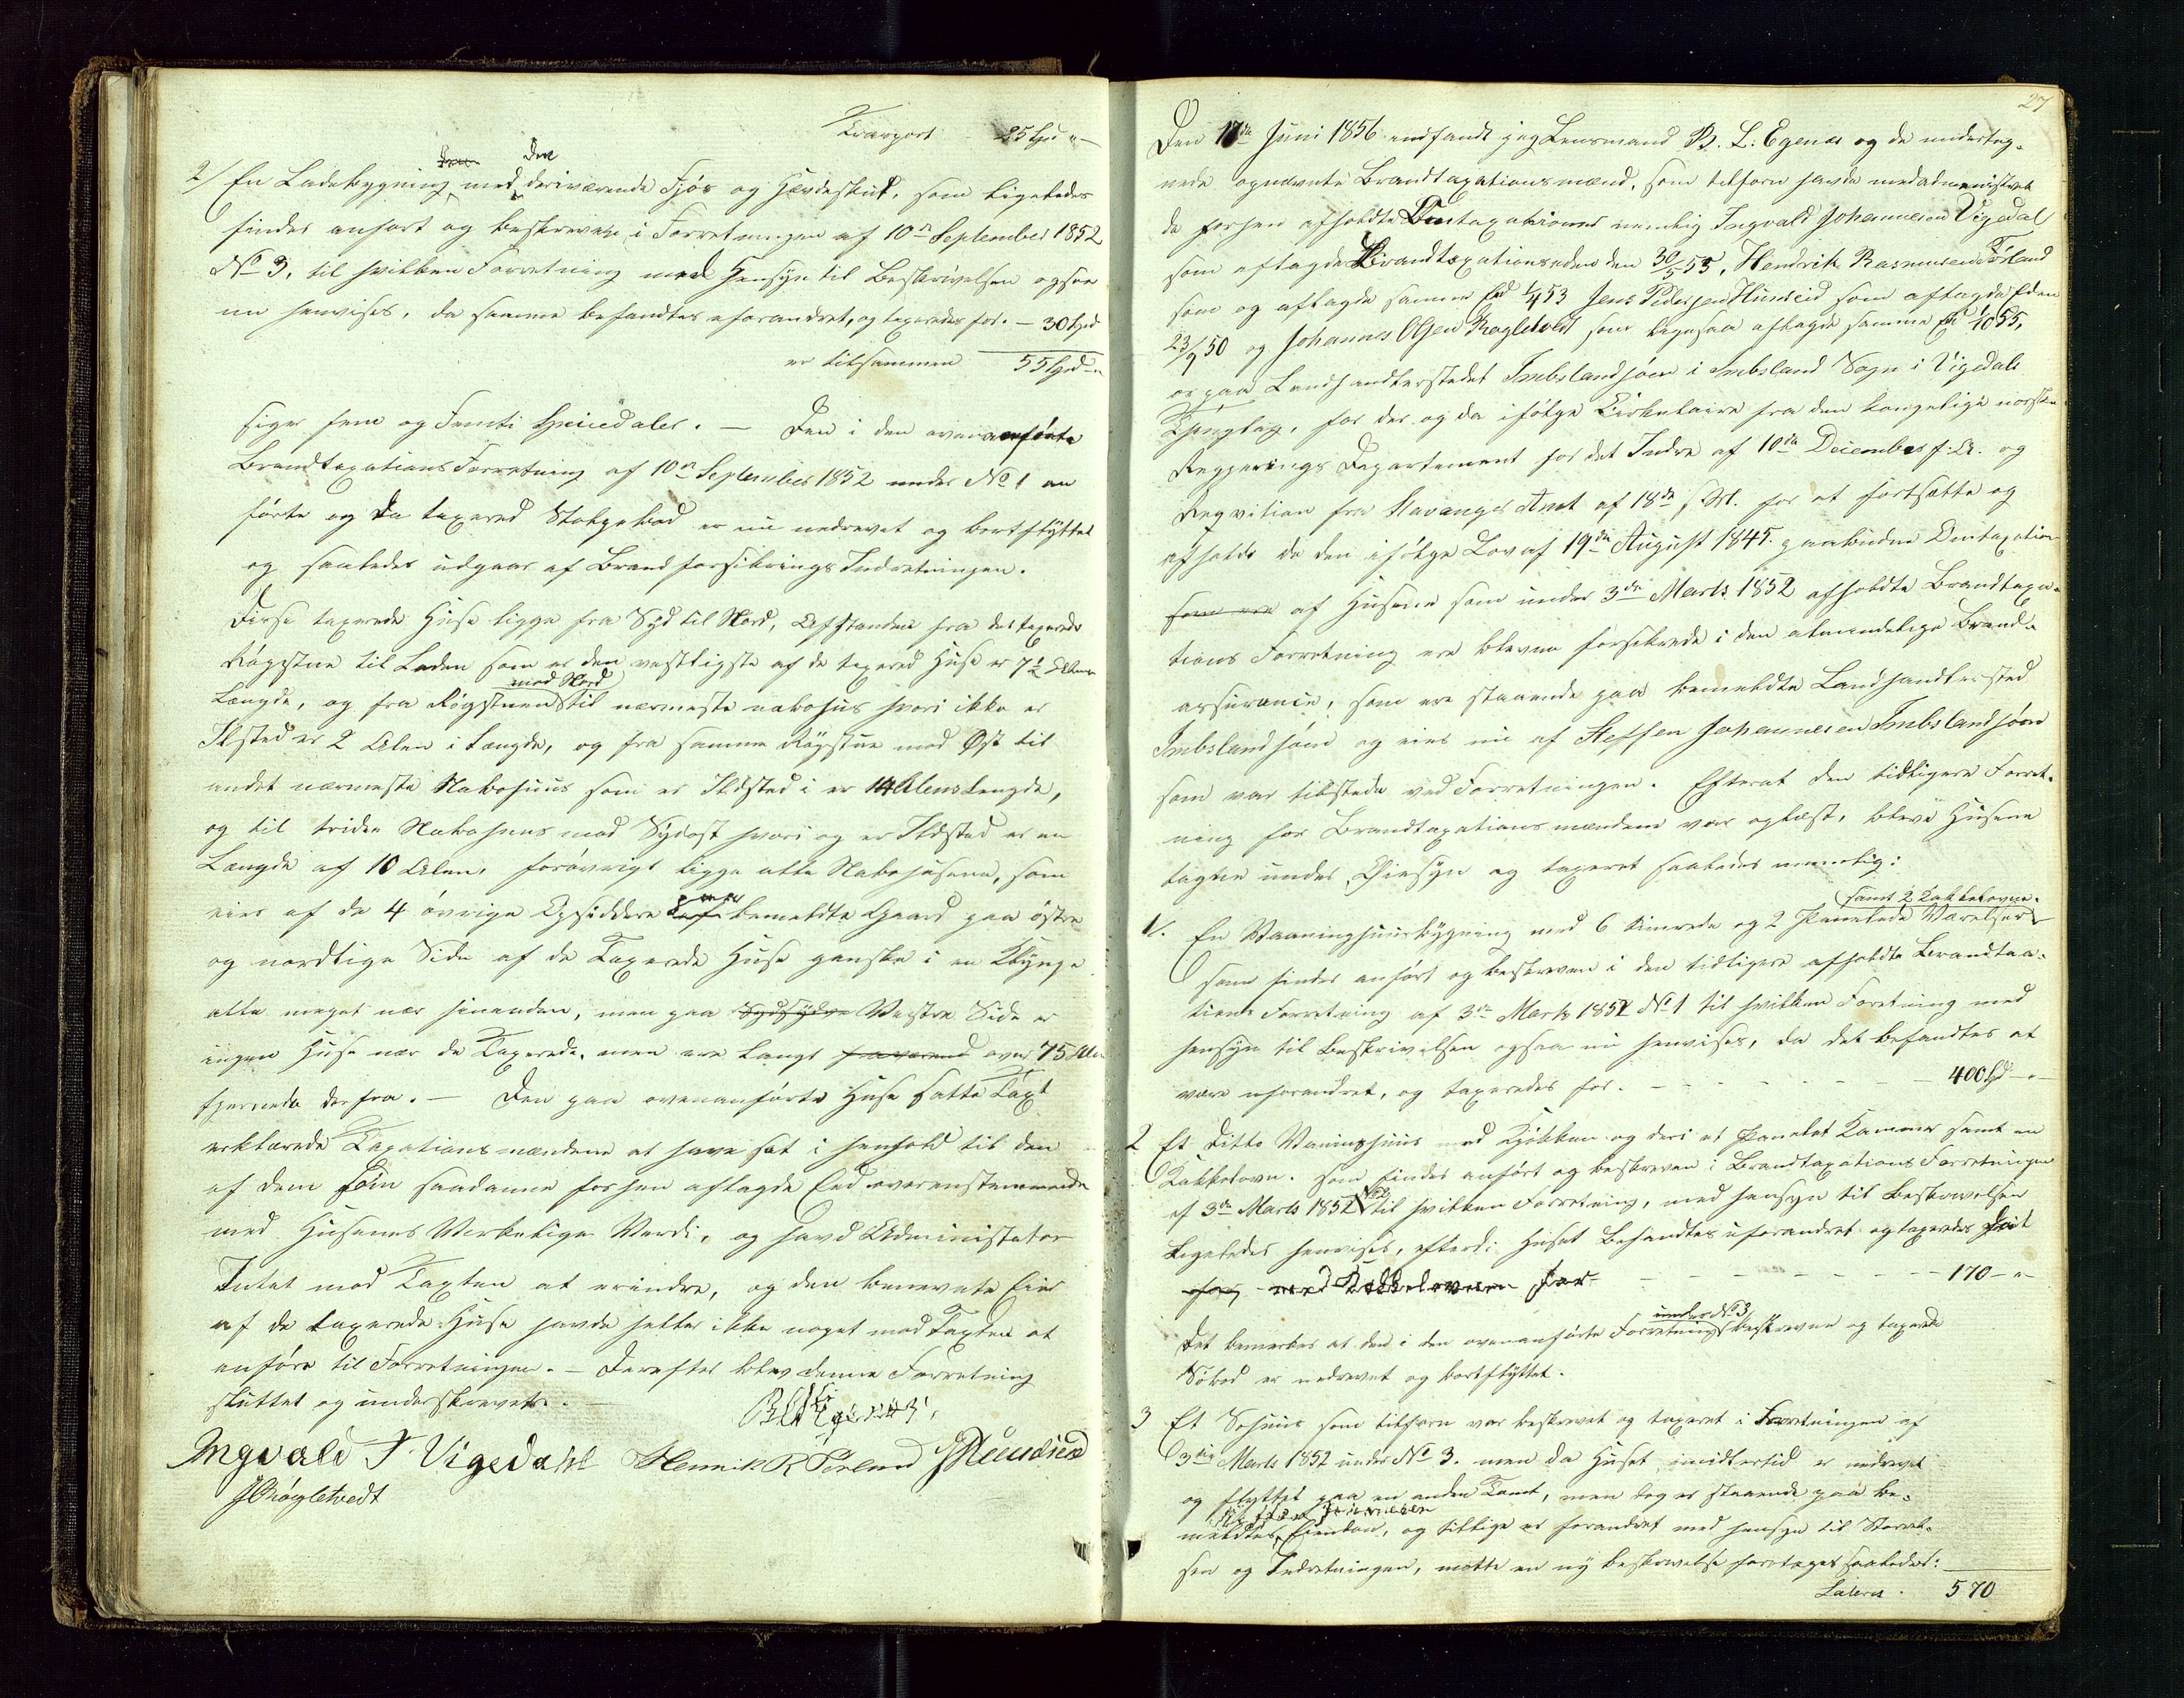 Transport 25 Spd "-
2/ En Ladebygning med den deriværende Fjøs og Hævdeskut, som ligeledes
findes anført og beskreven i Forretningen af 10de September 1852
No 3, til hvilken Forretning med Hensyn til Beskrivelsen ogsaa
nu henvises, da samme befandtes uforandret, og taxeredes for. - 30 Spd
er tilsammen 55 Spd "
siger fem og Femti Speciedaler. - Den i den ovenanførte
Brandtaxations Forretning af 10de September 1852 under No 1 an
førte og da taxered Stolpebod er nu nedrevet og bortflyttet
og saaledes udgaar af Brandforsikrings Indretningen.
Disse taxerede Huse ligge fra Syd til Nord, Afstanden fra det taxerede
Røgstue til Laden som er den vestligste af de taxered Huse er 7½ Alens
Længde, og fra Røgstuen mod Nord til nærmeste nabohus hvori ikke er
Ilsted er 2 Alen i Længde, og fra samme Røgstue mod Øst til
andet nærmeste Nabohuus som er Ildsted i er 14 Alens Længde,
og til tridie Nabohuus mod Sydost hvori og er Ildsted er en
Længde af 10 Alen, forøvrigt ligge alle Nabohusene, som
eies af de 4 øvrige Opsiddere paa bemeldte Gaard paa østre
og nordlige Side af de Taxerede Huse ganske i en Klynge
alle meget nær hinanden, men paa Vestre Side er
ingen Huse nær de Taxerede, men ere langt over 75 Alen
fjernede derfra. - Den paa ovenanførte Huse satte Taxt
erklærede Taxationsmændene at have sat i henhold til den
af dem som saadanne forhen aflagde Eed overensstemmende
med Husenes Virkelige Verdi, og havd Administator
Intet mod Taxten at erindre, og den benevnte Eier
af de taxerede Huse havde heller ikke noget mod Taxten at
anføre til Forretningen. - Derefter blev denne Forretning
sluttet og underskrevet. -
B. L. Egenæs
Ingvald J. Vigedahl Henrik R Tørland
J Røgletvedt
27
Den 17de Juni 1856 indfandt jeg Lensmand B. L. Egenæs og de underteg-
nede opnævnte Brandtaxationsmænd, som tilforn havde medadministret
de forhen afholdte Omtaxationer nemlig Ingvald Johannesen Vigedal
som aflagde Brandtaxationseden den 30/5 53, Hendrik Rasmussen Tørland
som og aflagde samme Eed 1/4 53 Jens Pedersen Hunseid som aflagde Eden
23/9 50 og Johannes Olsen Røgletvedt som ligesaa aflagde samme Ed 1/10 55,
os paa Landhandlerstedet Imbslandsjøen i Imbsland Sogn i Vigedals
Thinglag, for der og da ifølge Cirkulaire fra den kongelige norske
Regjerings Departement for det Indre af 10de December f. A. og
Reqvition fra Stavanger Amt af 18de s. M. for at fortsætte og
afholde da den ifølge Lov af 19de August 1845. paabudne Omtaxation
som ere af Husene som under 3de Marts 1852 afholdte Brandtaxa-
tions Forretning ere blevne forsikrede i den almindelige Brand-
assurance, som ere staaende paa bemeldte Landhandlersted
Imbslandsjøen og eies nu af Steffen Johannesen Imbslandsjøen
som var tilstede ved Forretningen. Efterat den tidligere Forret-
ning for Brandtaxationsmændene var oplæst, bleve Husene
tagne under Øiesyn og taxeret saaledes nemlig:
1/. En Vaaninghuusbygning med 6 Aarede og 2 Panelede Værelser samt 2 Kakkelovne.
som findes anført og beskreven i den tidligere afholdte Brandtaxa-
tions Forretning af 3de Marts 1852 No 1 til hvilken Foretning med
hensyn til beskrivelsen ogsaa nu henvises, da det befandtes at
være uforandret, og taxeredes for. - - - - 400 Spd - "
2 Et Ditto Vaaninghuus med Kjøkken og deri et Panelet Kammer samt en
Kakkelovn. som findes anført og beskreven i Brandtaxations Forretningen
af 3de Marts 1852 No 2 til hvilken Forretning, med hensyn til beskrivelsen
Ligeledes henvises, efterdi Huset befandtes uforandret og taxeredes
med Kakkelovnen for - - - - 170 - "
Det bemærkes at den i den ovenanførte Forretning under No 3 beskrevne og taxerede
Søbod er nedrevet og bortflyttet.
3 Et Søhuus som tilforn var beskrevet og taxeret i Forretningen af
3die Marts 1852 under No 3. men da Huset imidlertid er nedrevet
og flyttet paa en anden Tomt, men dog er staaende paa be-
meldtes Eiendom, og tillige er forandret med hensyn til Størrel-
sen og Indretningen, maatte en ny beskrivelse foretages saaledes:
Lateris . 570